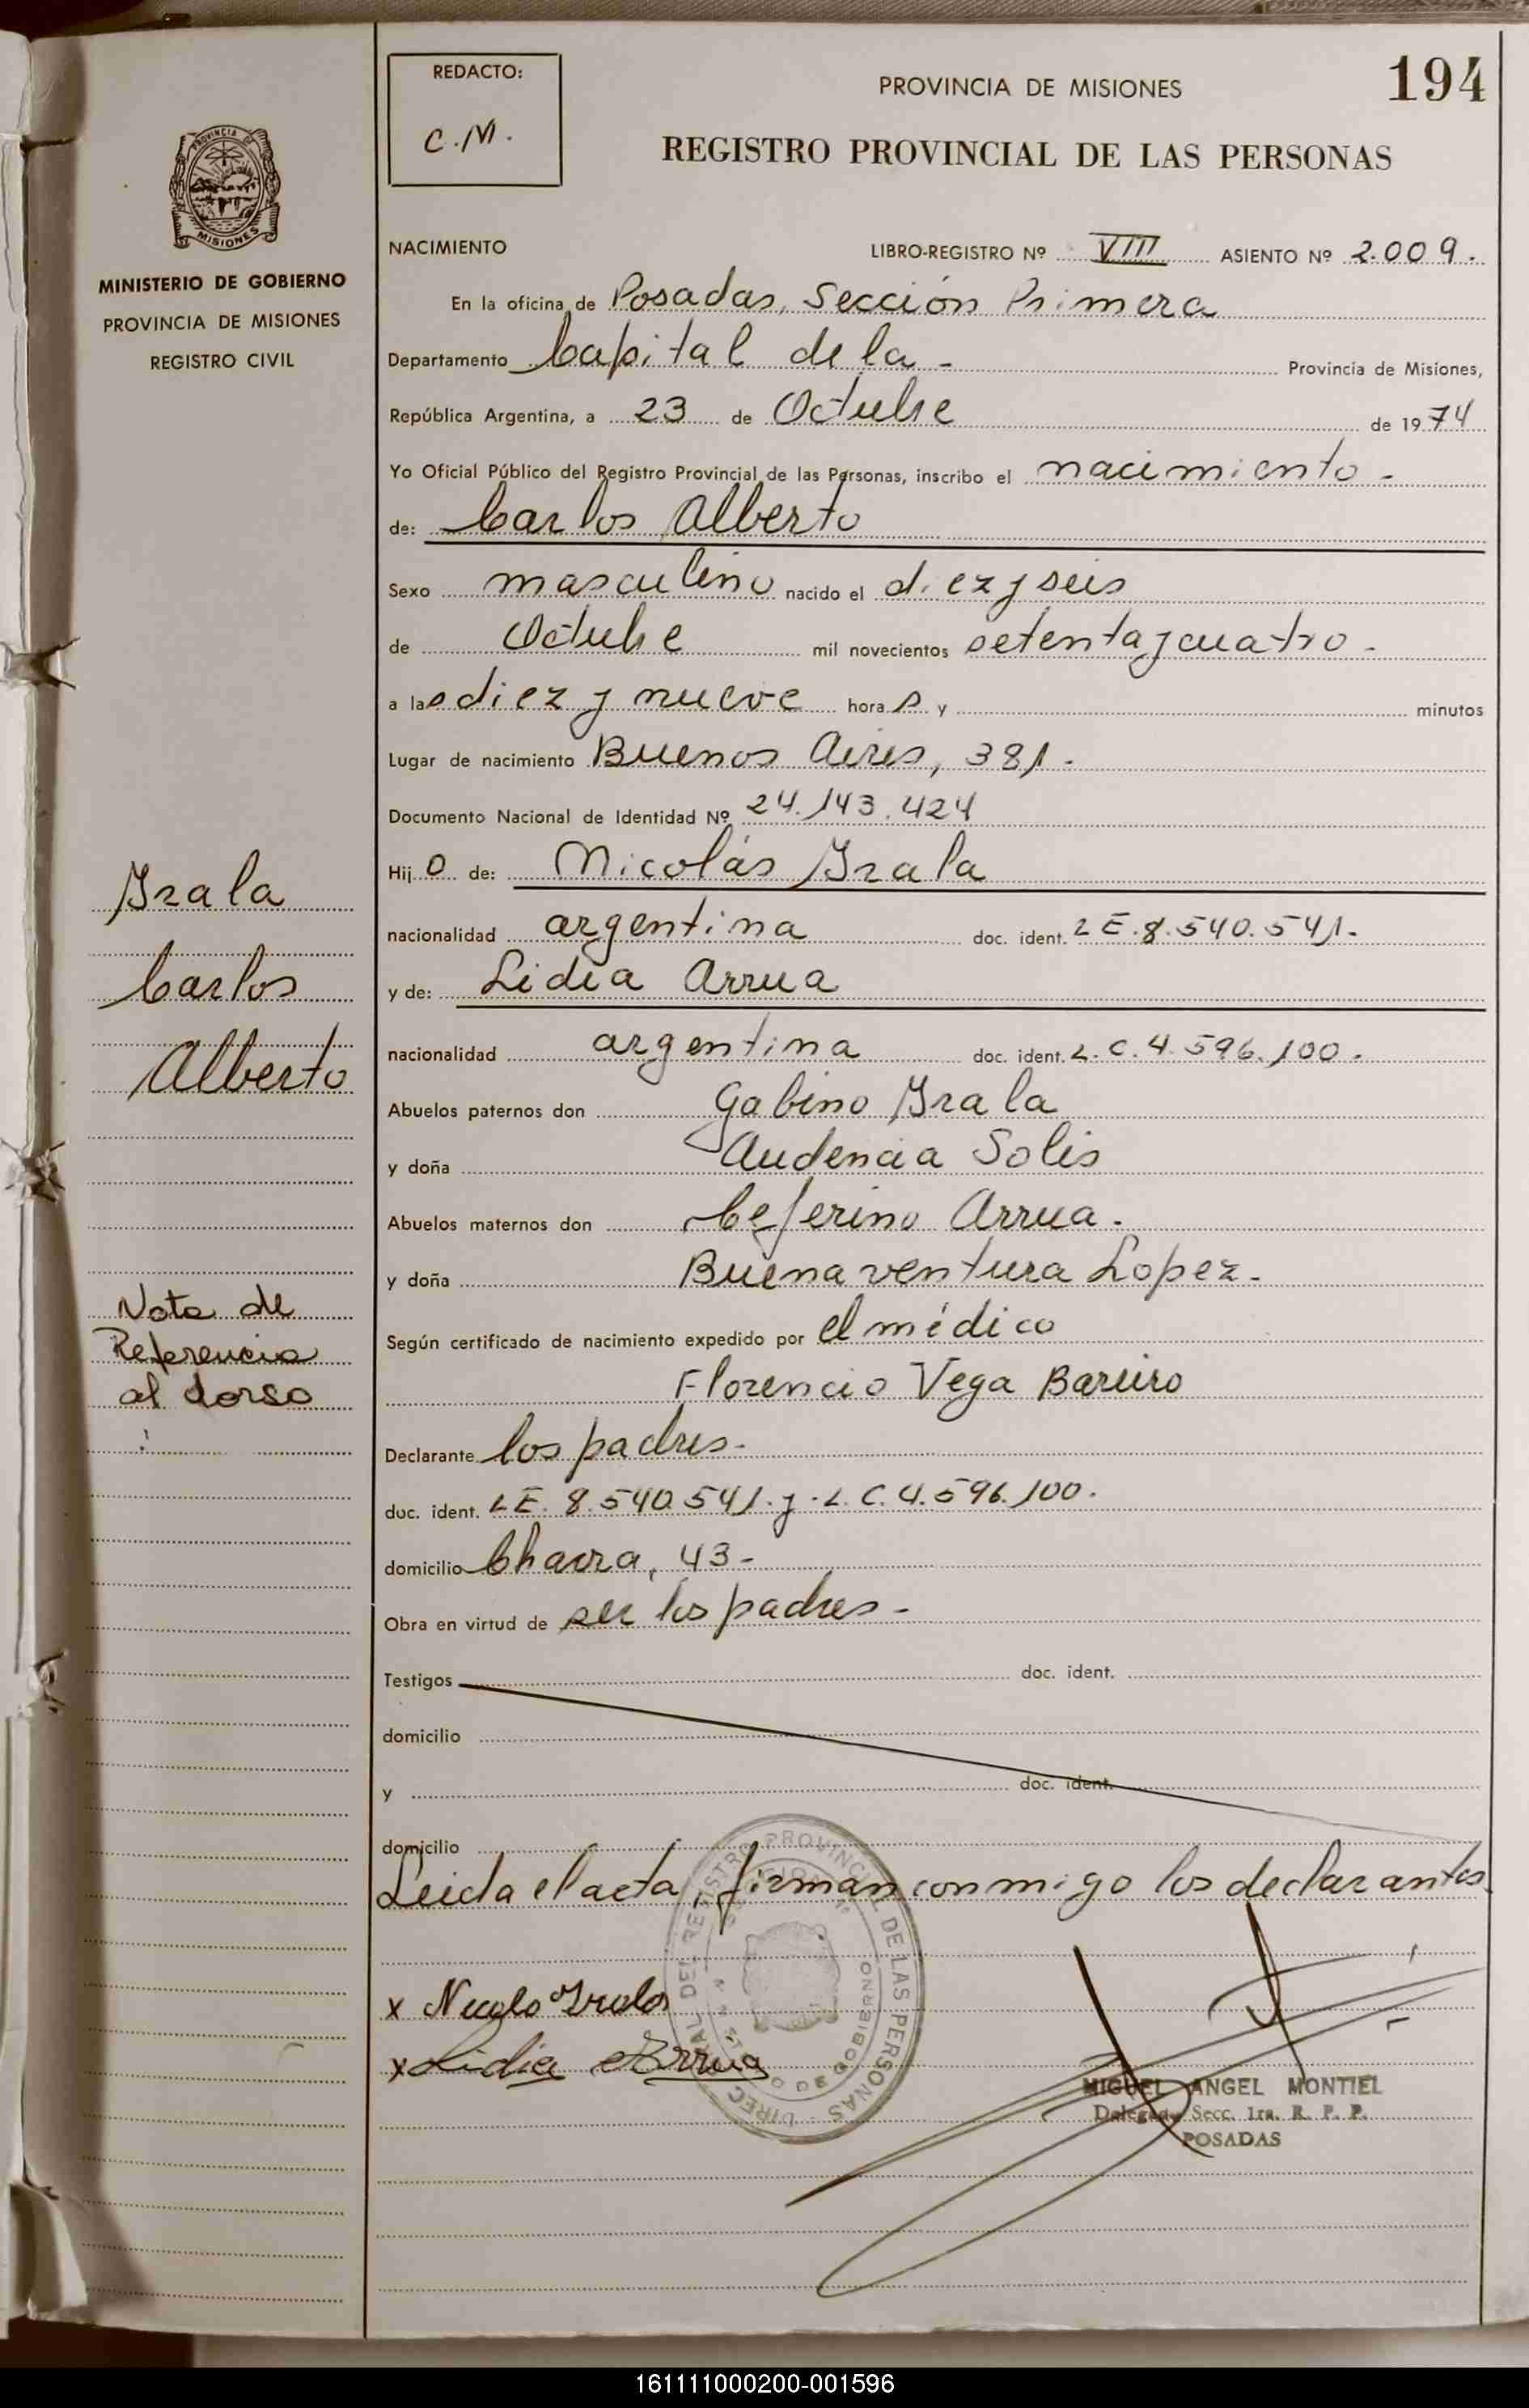 194
REDACTO:
C.M.
PROVINCIA DE MISIONES
REGISTRO PROVINCIAL DE LAS PERSONAS
PROVINCIA DE
MISIONES
MINISTERIO DE GOBIERNO
PROVINCIA DE MISIONES
REGISTRO CIVIL
NACIMIENTO LIBRO-REGISTRO Nº VIII ASIENTO Nº 2.009.
En la oficina de Posadas, Sección Primera
Departamento Capital de la - Provincia de Misiones,
República Argentina, a 23 de Octubre de 1974
Yo Oficial Público del Registro Provincial de las Personas, inscribo el nacimiento -
de: Carlos Alberto
Sexo masculino nacido el diez y seis
de Octubre mil novecientos setenta y cuatro -
a las diez y nueve horas y minutos
Lugar de nacimiento Buenos Aires, 381 -
Documento Nacional de Identidad Nº 24.143.424
Hijo de: Nicolás Irala
nacionalidad argentina doc. ident. L E. 8.540.541.-
y de: Lidia Arrua
nacionalidad argentina doc. ident. L. C. 4.596.100.
Abuelos paternos don Gabino Irala
y doña Audencia Solis
Abuelos maternos don Ceferino Arrua.
y doña Buenaventura Lopez.
Según certificado de nacimiento expedido por el médico
Florencio Vega Bareiro
Declarante los padres-
doc. ident. LE. 8.540.541. y L. C. 4.596.100.
domicilio Chacra, 43-
Obra en virtud de ser los padres-
Testigos doc. ident.
domicilio
y doc. ident.
domicilio
Leida el acta, firman conmigo los declarantes
Irala
Carlos
Alberto
Nota de
Referencia
al dorso
x Nicolo Irala
x Lidia Arrua
REGISTRO PROVINCIAL DE LAS PERSONAS
MIGUEL ANGEL MONTIEL
Delegado Secc. 1ra. R. P. P.
POSADAS
161111000200-001596